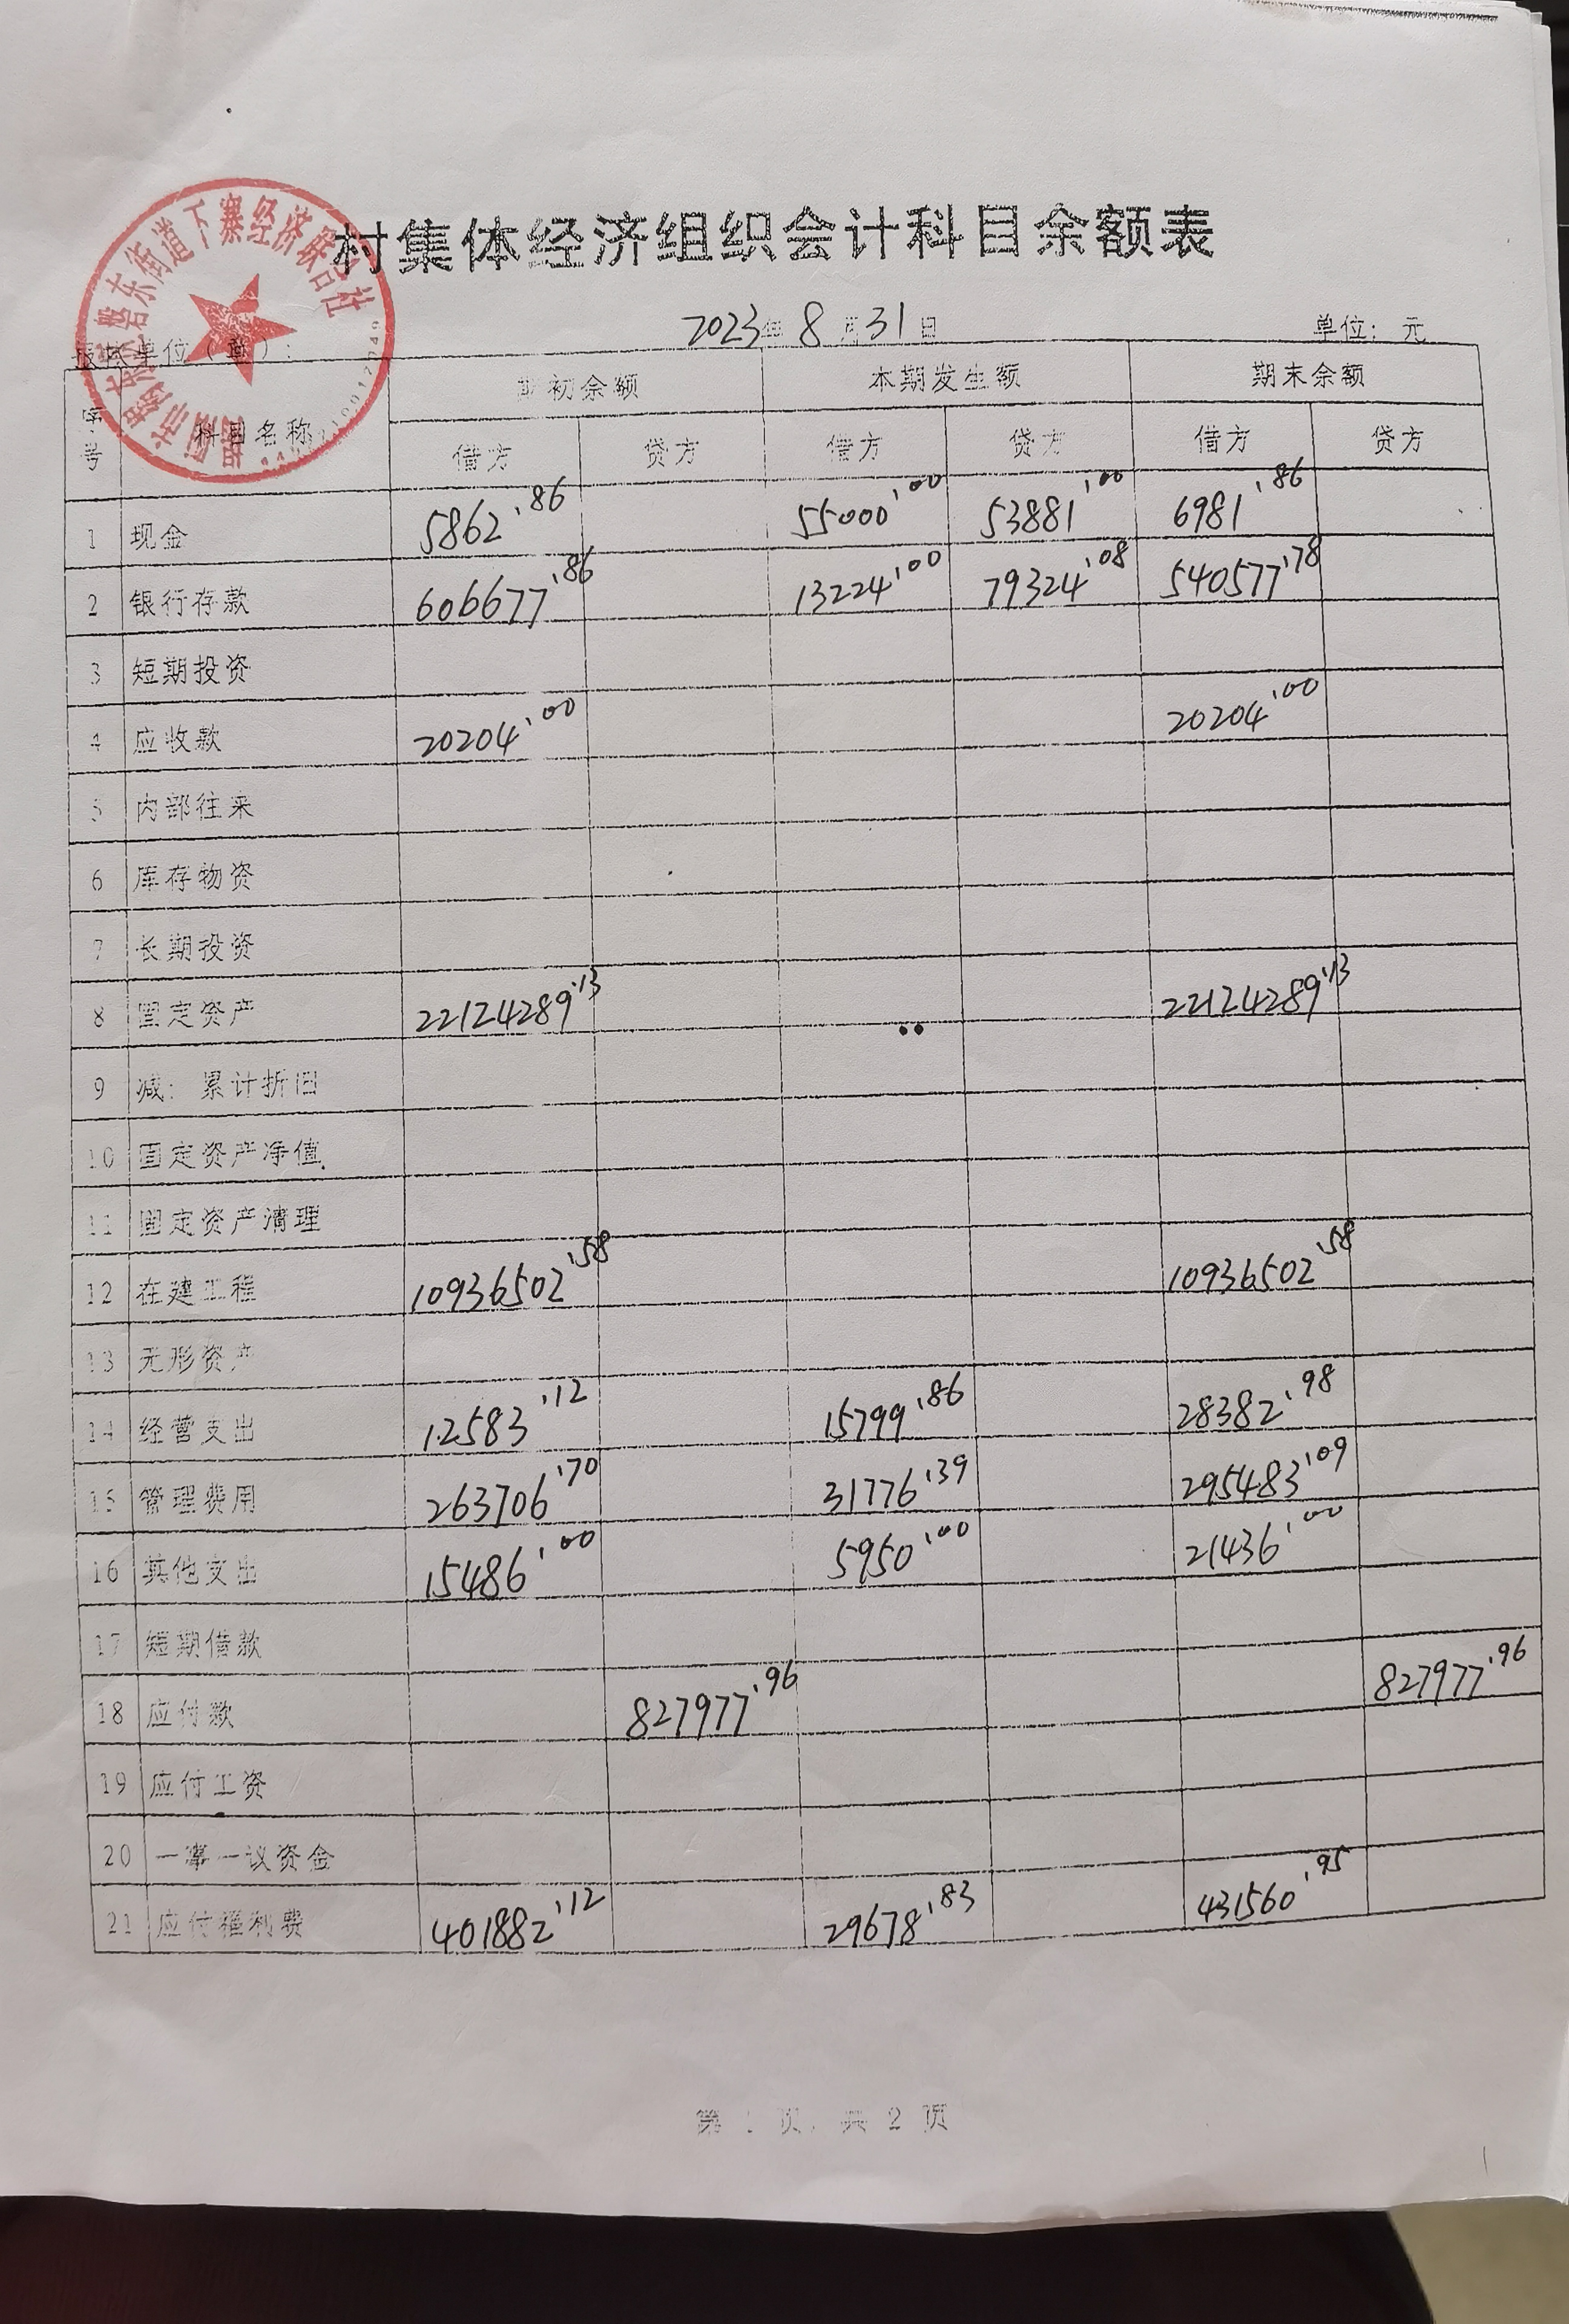 村集体经济组织会计科目余额表
磐东街道下寨经济联合社
2023年8月31日
单位：元
单位（章）：
序号 科目名称 期初余额 本期发生额 期末余额
借方 贷方 借方 贷方 借方 贷方
1 现金 5862.86 55000.00 53881.00 6981.86
2 银行存款 606677.86 13224.00 79324.08 540577.78
3 短期投资
4 应收款 20204.00 20204.00
5 内部往来
6 库存物资
7 长期投资
8 固定资产 22124289.13 22124289.13
9 减：累计折旧
10 固定资产净值
11 固定资产清理
12 在建工程 10936502.58 10936502.58
13 无形资产
14 经营支出 12583.12 15799.86 28382.98
15 管理费用 263706.70 31776.39 295483.09
16 其他支出 15486.00 5950.00 21436.00
17 短期借款
18 应付款 827977.96 827977.96
19 应付工资
20 一事一议资金
21 应付福利费 401882.12 29678.83 431560.95
第 1 页，共 2 页